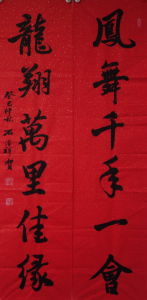 鳳舞千年一會
龍翔萬里佳緣
癸巳仲秋